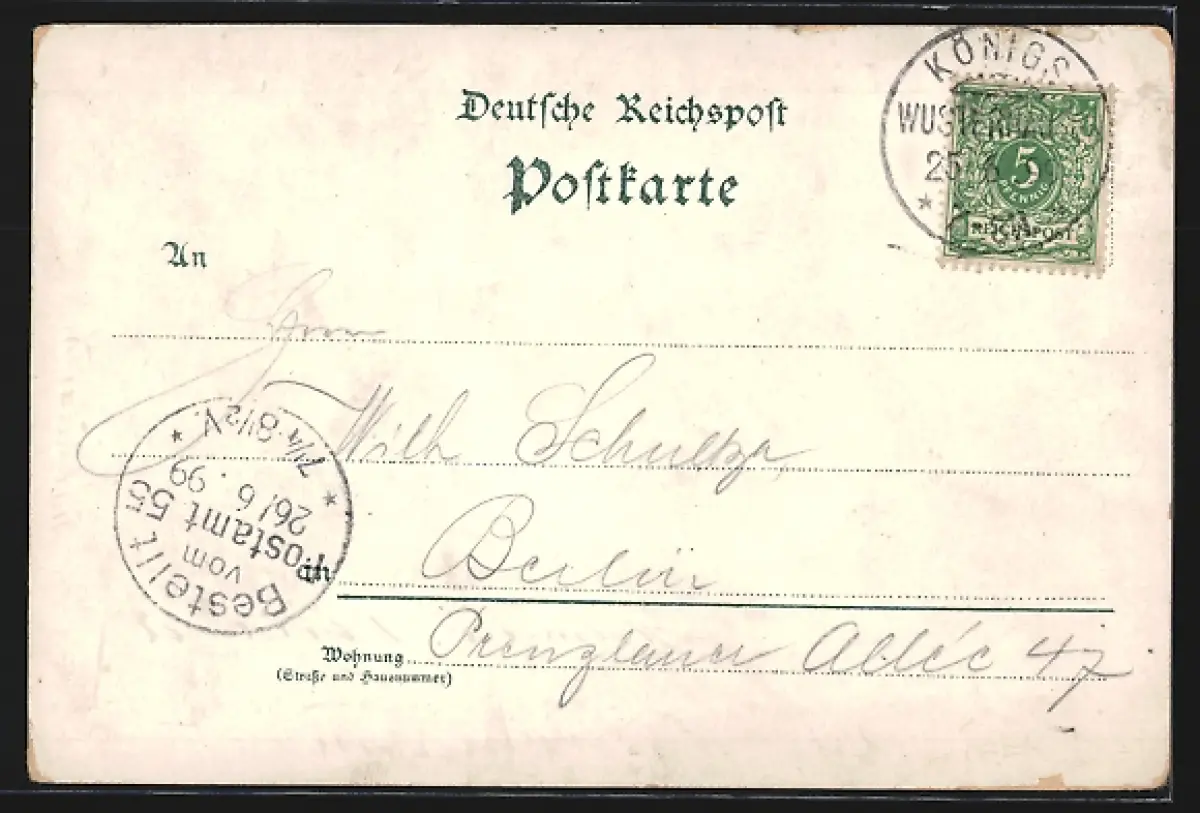 Deutsche Reichspost
Postkarte
KÖNIGS
WUSTERHAUSEN
25 6
5
PFENNIG
REICHSPOST
An
Herrn
Wilh Schultze
in Berlin
Wohnung Prenzlauer Allée 47
(Straße und Hausnummer)
Bestellt
vom
Postamt 55
26/6. 99
7 1/4-8 1/2 V